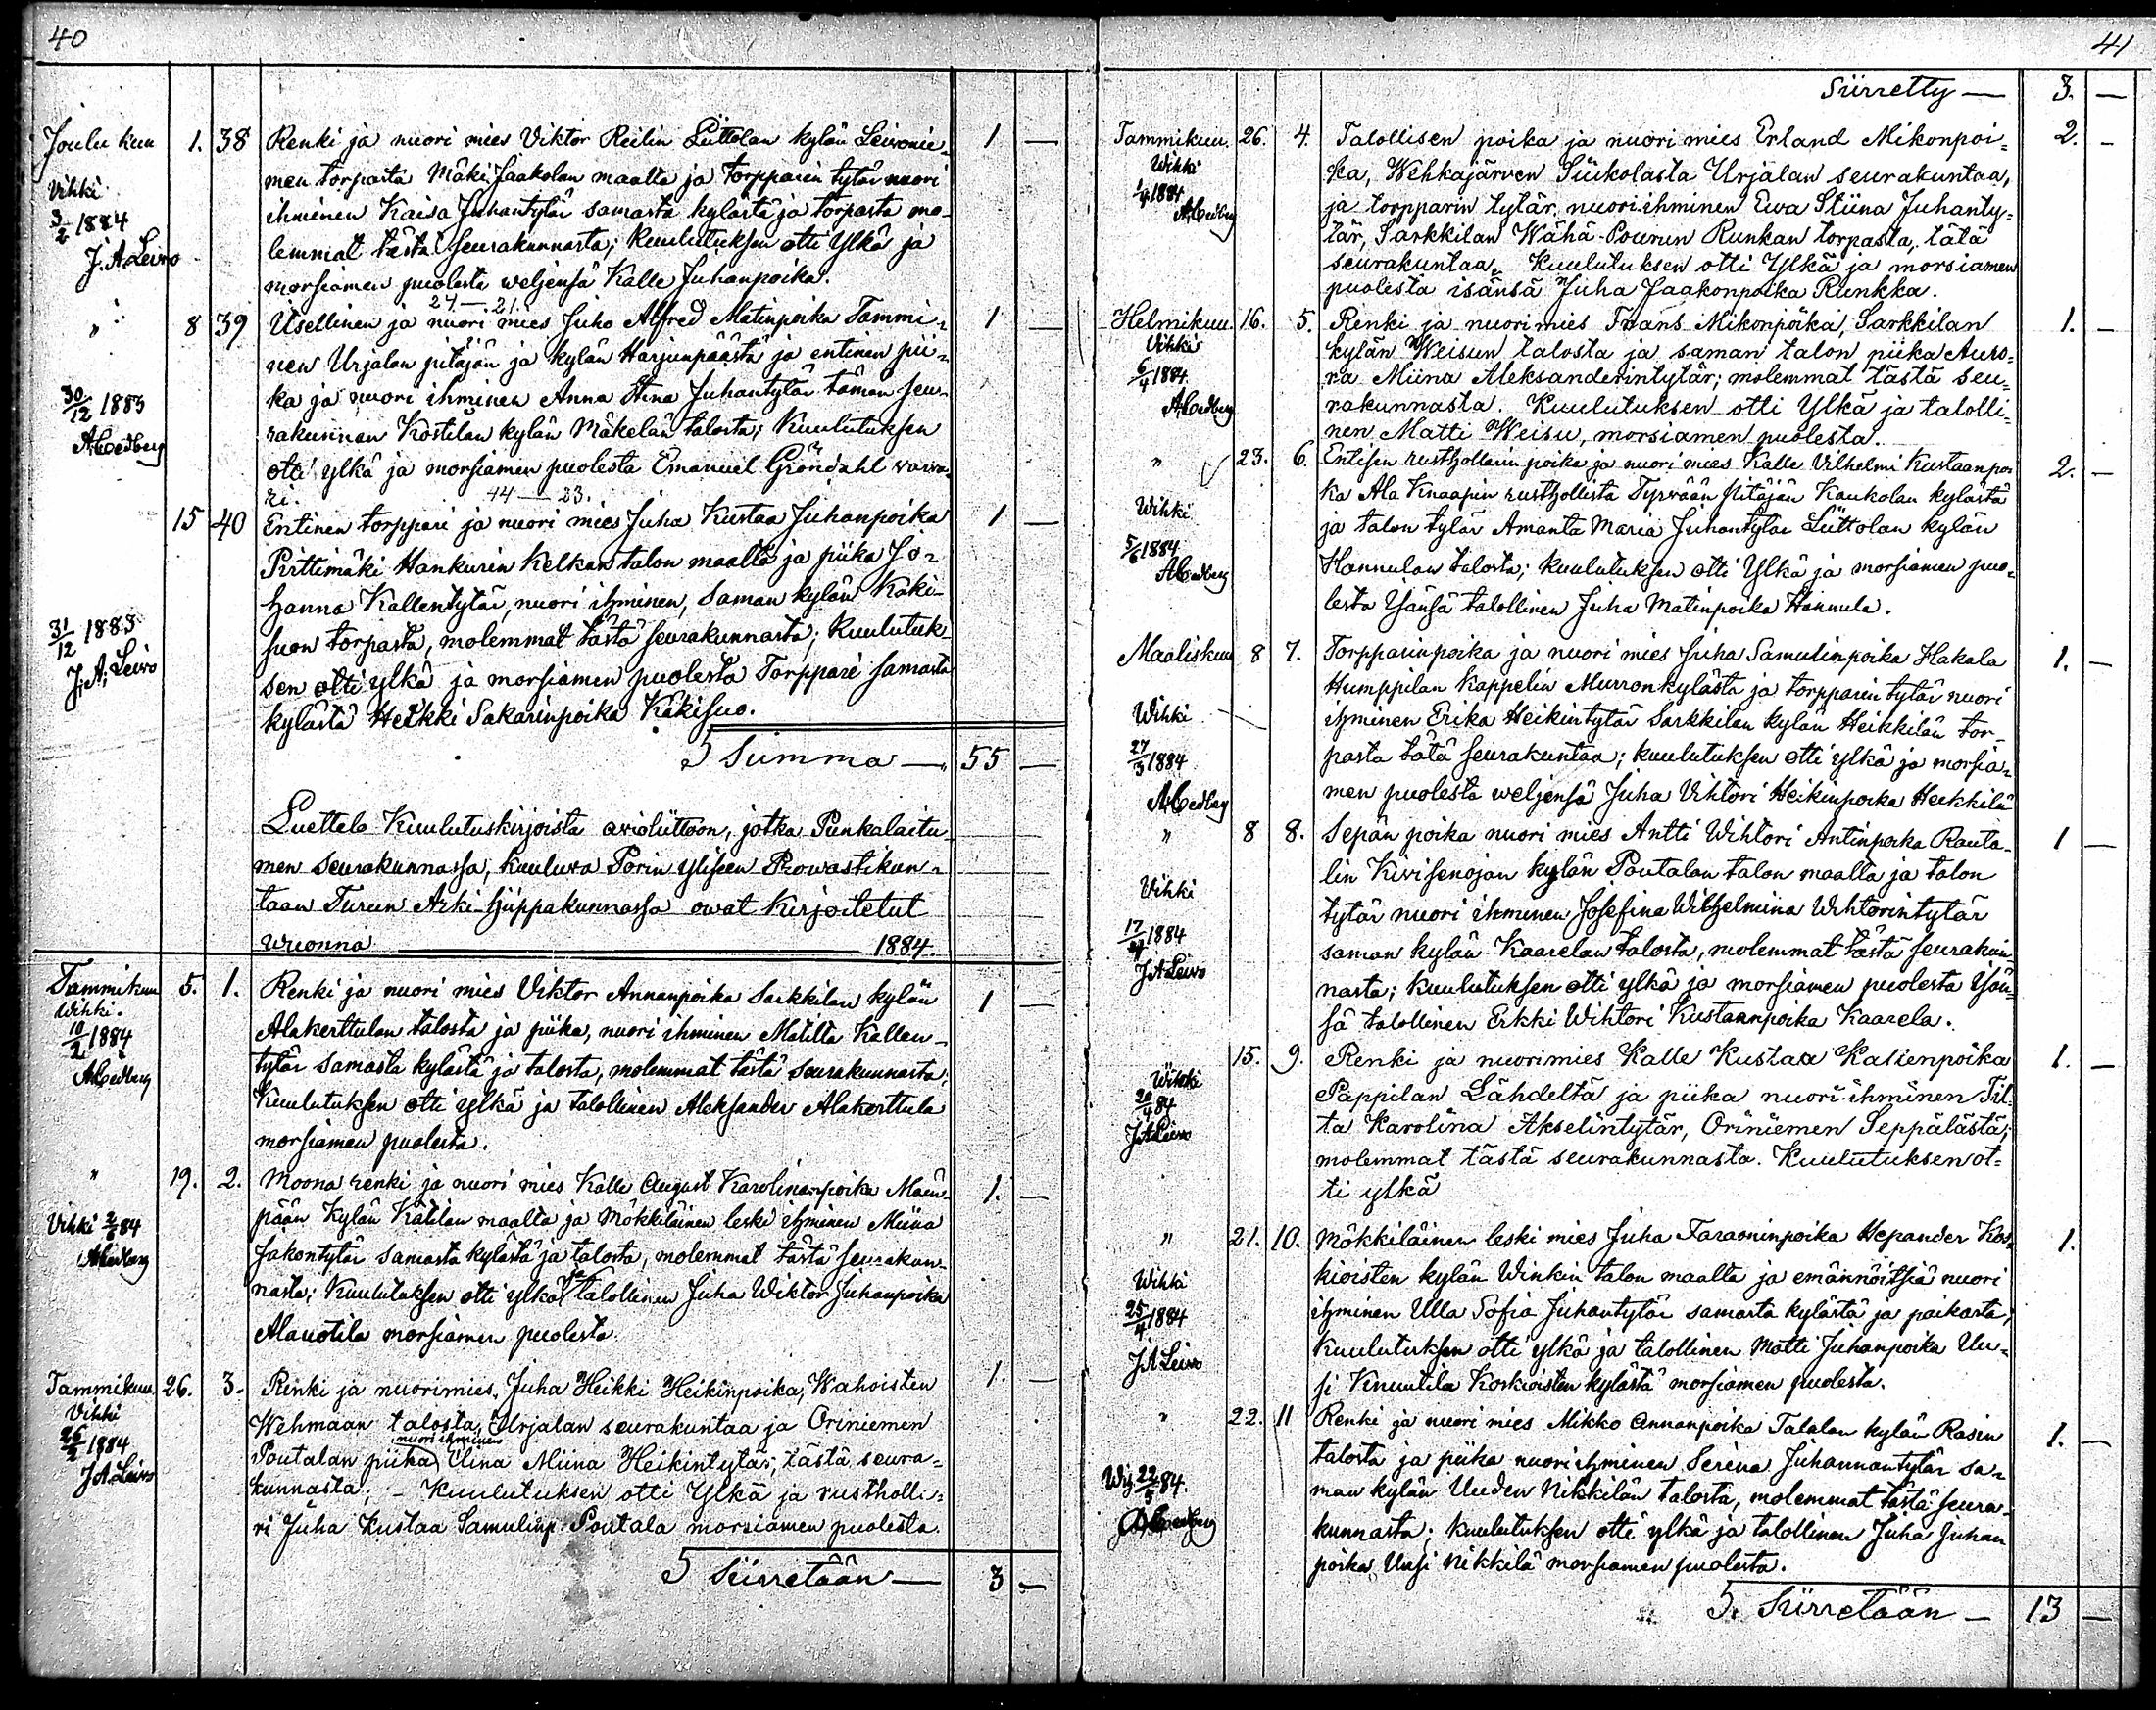 40
Joulu kuu 1. 38 Renki ja nuori mies Viktor Reilin Liittolan kylän Leivonie- 1 —
men torpasta Mäki Jaakolan maalta ja torpparin tytär nuori
Vihki
ihminen Kaisa Juhantytär samasta kylästä ja torpasta mo-
3/2 1884
lemmat tästä seurakunnasta; kuulutuksen otti ylkä ja
J. A. Leivo
morsiamen puolesta weljensä Kalle Juhanpoika.
24 — 21.
" 8 39 Itsellinen ja nuori mies Juho Alfred Matinpoika Tammi- 1 —
nen Urjalan pitäjän ja kylän Harjunpäästä ja entinen pii-
30/12 1883
ka ja nuori ihminen Anna Stina Juhantytär tämän seu-
A Cedberg
rakunnan Kostilan kylän Mäkelän talosta; Kuulutuksen
otti ylkä ja morsiamen puolesta Emanuel Gröndahl vaiva-
ri. 44 — 23.
15 40 Entinen torppari ja nuori mies Juha Kustaa Juhanpoika 1 —
Pirttimäki Hankurin Kelkan talon maalta ja piika Jo-
hanna Kallentytär, nuori ihminen, saman kylän Käki-
31/12 1883
suon torpasta, molemmat tästä seurakunnasta; kuulutuk-
J. A. Leivo
sen otti ylkä ja morsiamen puolesta Torppari samasta
kylästä Heikki Sakarinpoika Käkisuo.
Summa — 55 —
Luettelo Kuulutuskirjoista avioliittoon, jotka Punkalaitu-
men seurakunnassa, kuuluva Porin yliseen Prowastikun-
taan Turun Arki-hiippakunnassa owat kirjoitetut
wuonna 1884.
Tammikuu 5. 1. Renki ja nuori mies Viktor Annanpoika Sarkkilan kylän 1 —
Wihki.
10/2 1884
Alakerttulan talosta ja piika, nuori ihminen Matilta Kallen-
A Cedberg
tytär samasta kylästä ja talosta, molemmat tästä seurakunnasta;
Kuulutuksen otti ylkä ja talollinen Aleksander Alakerttula
morsiamen puolesta.
" 19. 2. Moona renki ja nuori mies Kalle August Karolinanpoika Mäen- 1. —
pään kylän Kätilän maalta ja mökkiläinen leski ihminen Miina
Vihki 2/6 84
A Cedberg
Jakontytär samasta kylästä ja talosta, molemmat tästä seurakun-
nasta; Kuulutuksen otti ylkä ja talollinen Juha Wiktor Juhanpoika
Alauotila morsiamen puolesta.
Tammikuu 26. 3. Renki ja nuorimies, Juha Heikki Heikinpoika, Wahoisten 1. —
Vihki
26/2 1884
Wehmaan talosta, Urjalan seurakuntaa ja Oriniemen
J A Leivo
Poutalan piika nuori ihminen Elina Miina Heikintytär, tästä seura-
kunnasta; — Kuulutuksen otti Ylkä ja rustholli-
ri Juha Kustaa Samulinp. Poutala morsiamen puolesta.
Siirretään — 3 —
41
Siirretty — 3. —
Tammikuu. 26. 4. Talollisen poika ja nuori mies Erland Mikonpoi- 2. —
Wihki
ka, Wehkajärven Siukolasta Urjalan seurakuntaa,
1/4 1884
ja torpparin tytär nuori ihminen Ewa Stiina Juhanty-
A Cedberg
tär, Sarkkilan Wähä-Pourun Runkan torpasta, tätä
seurakuntaa. Kuulutuksen otti Ylkä ja morsiamen
puolesta isänsä Juha Jaakonpoika Runkka.
Helmikuu. 16. 5. Renki ja nuori mies Frans Mikonpoika, Sarkkilan 1. —
Vihki
kylän Weisun talosta ja saman talon piika Auro-
6/4 1884
ra Miina Aleksanderintytär; molemmat tästä seu-
A Cedberg
rakunnasta. Kuulutuksen otti Ylkä ja talolli-
nen Matti Weisu, morsiamen puolesta.
" 23. 6. Entisen rusthollarin poika ja nuori mies Kalle Vilhelmi Kustaanpoi- 2. —
ka Ala Knaapin rusthollista Tyrvään pitäjän Kaukolan kylästä
Wihki
ja talon tytär Amanta Maria Juhantytär Liittolan kylän
5/6 1884
A Cedberg
Hannulan talosta; kuulutuksen otti Ylkä ja morsiamen puo-
lesta Isänsä talollinen Juha Matinpoika Hannula.
Maaliskuu 8 7. Torpparinpoika ja nuori mies Juha Samulinpoika Hakala 1. —
Humppilan Kappelin Murronkylästä ja torpparin tytär nuori
Wihki
ihminen Erika Heikintytär Sarkkilan kylän Heikkilän tor-
27/3 1884
pasta tätä seurakuntaa; kuulutuksen otti ylkä ja morsia-
A Cedberg
men puolesta weljensä Juha Vihtori Heikinpoika Heikkilä
" 8 8. Sepän poika nuori mies Antti Wihtori Antinpoika Rauta- 1 —
lin Kivisenojan kylän Poutalan talon maalta ja talon
Vihki
tytär nuori ihminen Josefina Wilhelmina Wihtorintytär
17/4 1884
saman kylän Kaarelan talosta, molemmat tästä seurakun-
J A Leivo
nasta; Kuulutuksen otti ylkä ja morsiamen puolesta Isän-
sä talollinen Erkki Wihtori Kustaanpoika Kaarela.
15. 9. Renki ja nuorimies Kalle Kustaa Kallenpoika 1. —
Wihki
Pappilan Lähdeltä ja piika nuori ihminen Til-
20/4 84
J A Leivo
ta Karolina Akselintytär, Oriniemen Seppälästä;
molemmat tästä seurakunnasta. Kuulutuksen ot-
ti ylkä
" 21. 10. Mökkiläinen leski mies Juha Faraoninpoika Hepander Kos- 1.
kioisten kylän Winkin talon maalta ja emännöitsiä nuori
Wihki
ihminen Ulla Sofia Juhantytär samasta kylästä ja paikasta;
25/4 1884
Kuulutuksen otti ylkä ja talollinen Matti Juhanpoika Uu-
J A Leivo
si Knuutila Koskioisten kylästä morsiamen puolesta.
" 22. 11 Renki ja nuori mies Mikko Annanpoika Talalan kylän Rasin 1. —
talosta ja piika nuori ihminen Serina Juhannantytär sa-
Wih 22/5 84.
man kylän Uuden Nikkilän talosta, molemmat tästä seura-
A Cedberg
kunnasta; kuulutuksen otti ylkä ja talollinen Juha Juhan
poika Uusi Nikkilä morsiamen puolesta.
Siirretään — 13 —